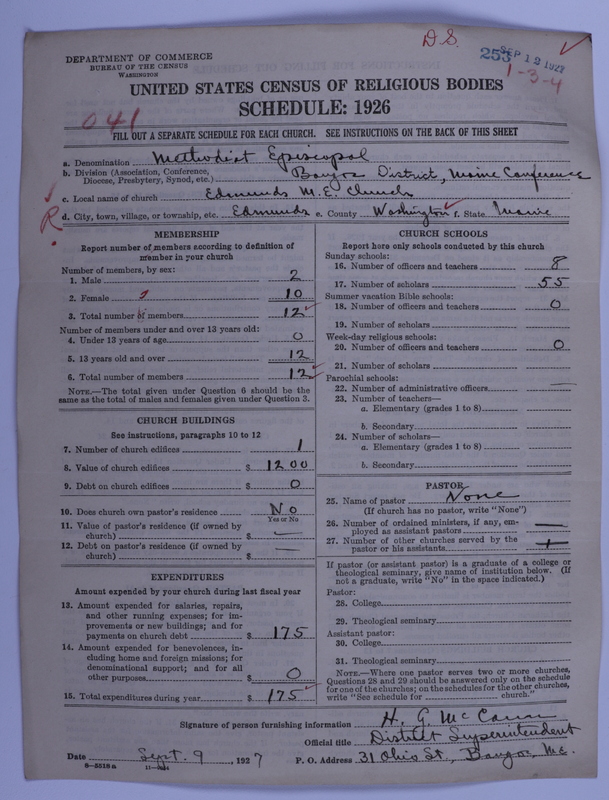 D.S.
253 SEP 12 1927
1-3-4
DEPARTMENT OF COMMERCE
BUREAU OF THE CENSUS
WASHINGTON
UNITED STATES CENSUS OF RELIGIOUS BODIES
SCHEDULE: 1926
041
FILL OUT A SEPARATE SCHEDULE FOR EACH CHURCH. SEE INSTRUCTIONS ON THE BACK OF THIS SHEET
a. Denomination Methodist Episcopal
b. Division (Association, Conference, Diocese, Presbytery, Synod, etc.) Bangor District, Maine Conference
c. Local name of church Edmunds M.E. Church
R. d. City, town, village, or township, etc. Edmunds e. County Washington f. State Maine
MEMBERSHIP
Report number of members according to definition of
member in your church
Number of members, by sex:
1. Male 2
2. Female 10
3. Total number of members 12
Number of members under and over 13 years old:
4. Under 13 years of age 0
5. 13 years old and over 12
6. Total number of members 12
NOTE.—The total given under Question 6 should be the
same as the total of males and females given under Question 3.
CHURCH BUILDINGS
See instructions, paragraphs 10 to 12
7. Number of church edifices 1
8. Value of church edifices $ 1200
9. Debt on church edifices $ 0
10. Does church own pastor's residence No
Yes or No
11. Value of pastor's residence (if owned by
church) $ —
12. Debt on pastor's residence (if owned by
church) $ —
EXPENDITURES
Amount expended by your church during last fiscal year
13. Amount expended for salaries, repairs,
and other running expenses; for im-
provements or new buildings; and for
payments on church debt $ 175
14. Amount expended for benevolences, in-
cluding home and foreign missions; for
denominational support; and for all
other purposes $ 0
15. Total expenditures during year $ 175
CHURCH SCHOOLS
Report here only schools conducted by this church
Sunday schools:
16. Number of officers and teachers 8
17. Number of scholars 55
Summer vacation Bible schools:
18. Number of officers and teachers 0
19. Number of scholars
Week-day religious schools:
20. Number of officers and teachers 0
21. Number of scholars
Parochial schools:
22. Number of administrative officers —
23. Number of teachers—
a. Elementary (grades 1 to 8)
b. Secondary
24. Number of scholars—
a. Elementary (grades 1 to 8)
b. Secondary
PASTOR
25. Name of pastor None
(If church has no pastor, write "None")
26. Number of ordained ministers, if any, em-
ployed as assistant pastors —
27. Number of other churches served by the
pastor or his assistants
If pastor (or assistant pastor) is a graduate of a college or
theological seminary, give name of institution below. (If
not a graduate, write "No" in the space indicated.)
Pastor:
28. College
29. Theological seminary
Assistant pastor:
30. College
31. Theological seminary
NOTE.—Where one pastor serves two or more churches,
Questions 28 and 29 should be answered only on the schedule
for one of the churches; on the schedules for the other churches,
write "See schedule for church."
Signature of person furnishing information H. G. McCann
Official title District Superintendent
Date Sept. 9, 1927 P. O. Address 31 Ohio St., Bangor, Me.
8-5518a